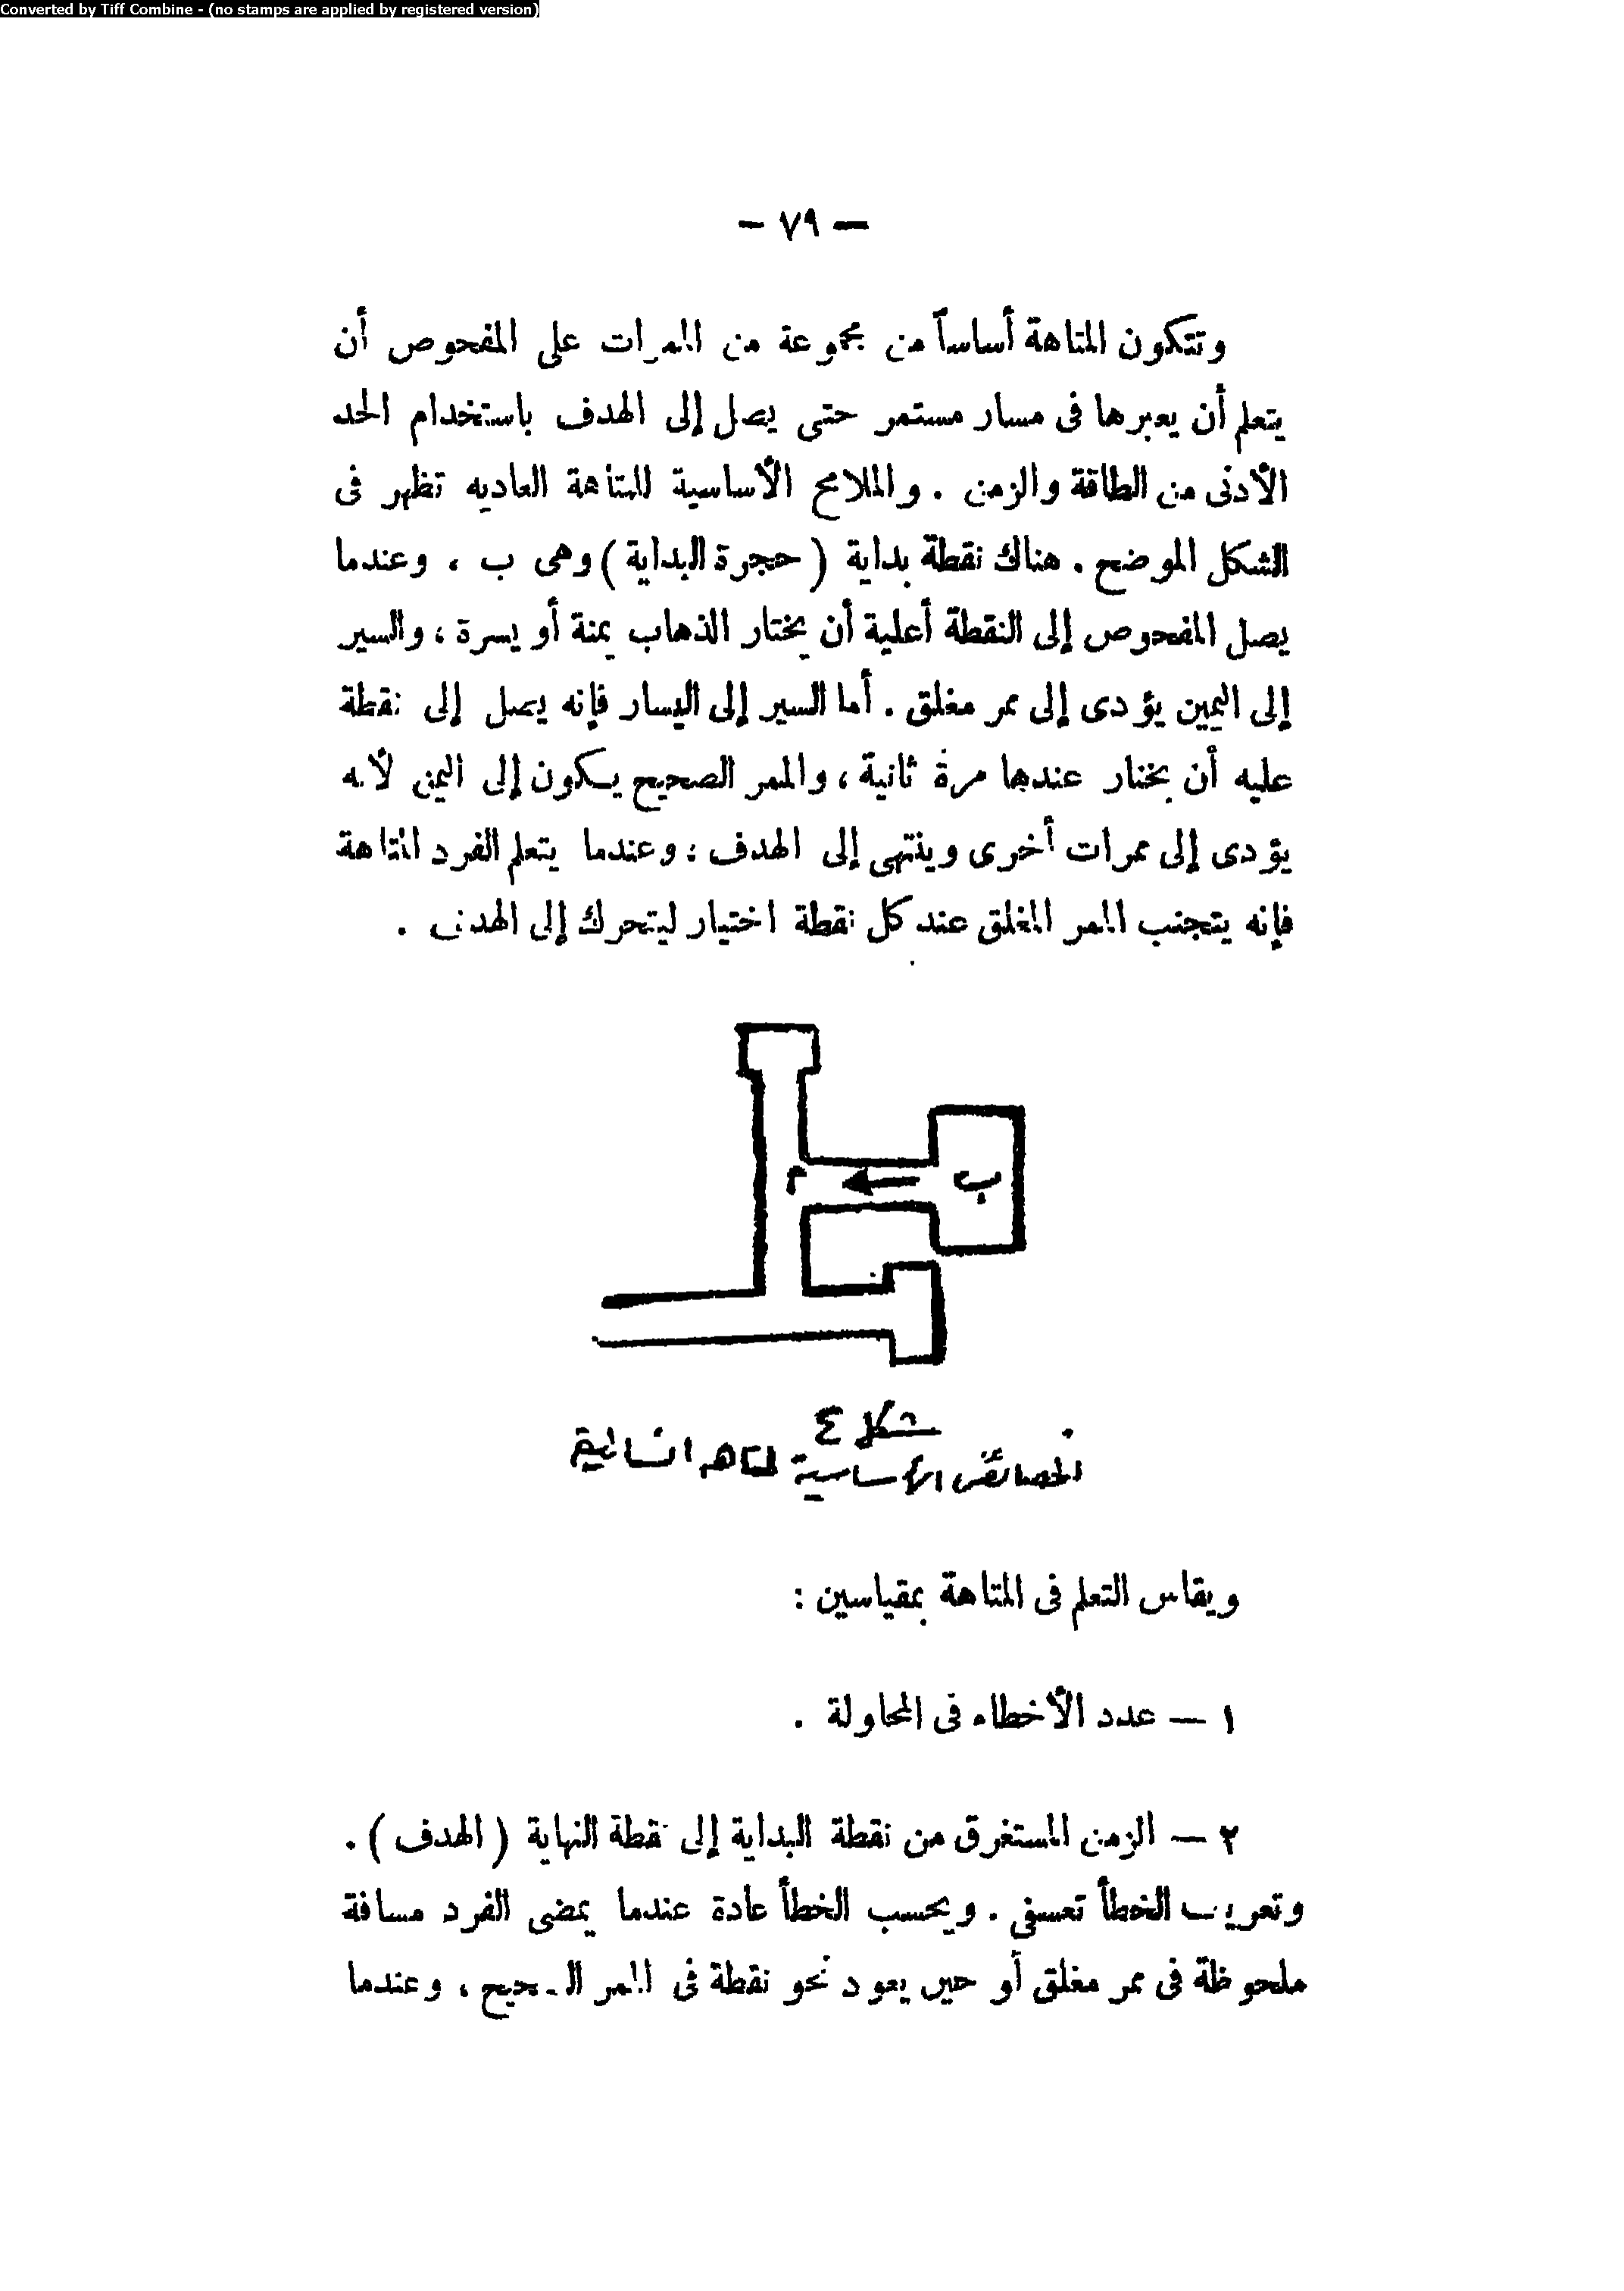 Converted by Tiff Combine - (no stamps are applied by registered version)
— ٧٩ —
وتتكون المتاهة أساساً من مجموعة من الممرات على المفحوص أن
يتعلم أن يعبرها فى مسار مستمر حتى يصل إلى الهدف باستخدام الحد
الأدنى من الطاقة والزمن . والملامح الأساسية للمتاهة العاديه تظهر فى
الشكل الموضح . هناك نقطة بداية ( حجرة البداية ) وهى ب ، وعندما
يصل المفحوص إلى النقطة أعلية أن يختار الذهاب يمنة أو يسرة ، والسير
إلى اليمين يؤدى إلى ممر مغلق . أما السير إلى اليسار فإنه يصل إلى نقطة
عليه أن يختار عندها مرة ثانية ، والممر الصحيح يكون إلى اليمن لأنه
يؤدى إلى ممرات أخرى وينتهى إلى الهدف ؛ وعندما يتعلم الفرد المتاهة
فإنه يتجنب الممر المغلق عند كل نقطة اختيار ليتحرك إلى الهدف .
ب
م
شكل ٤
الخصائص الأساسية لمتاهه
ويقاس التعلم فى المتاهة بمقياسين :
١ — عدد الأخطاء فى المحاولة .
٢ — الزمن المستغرق من نقطة البداية إلى نقطة النهاية ( الهدف ) .
وتعريف الخطأ تعسفى . ويحسب الخطأ عادة عندما يمضى الفرد مسافة
ملحوظة فى ممر مغلق أو حين يعود نحو نقطة فى الممر الصحيح ، وعندما